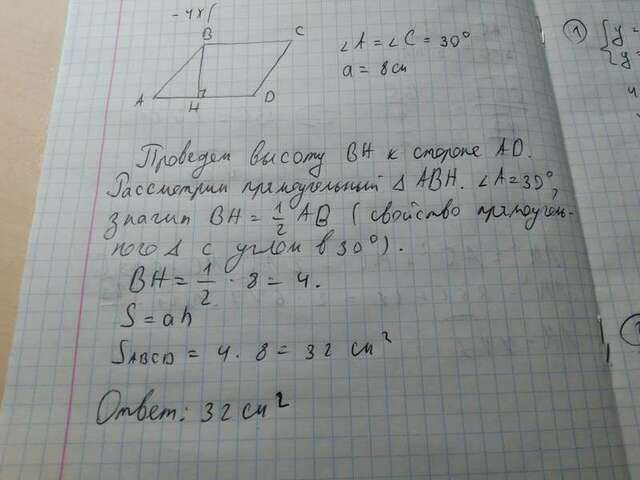 - 4x
B
C
∠A = ∠C = 30°
a = 8 см
A
H
D
Проведем высоту BH к стороне AD.
Рассмотрим прямоугольный Δ ABH. ∠A = 30°,
значит BH = 1/2 AB (свойство прямоуголь-
ного Δ с углом в 30°).
BH = 1/2 · 8 = 4.
S = ah
SABCD = 4 · 8 = 32 см²
Ответ: 32 см²
1
{ y =
y =